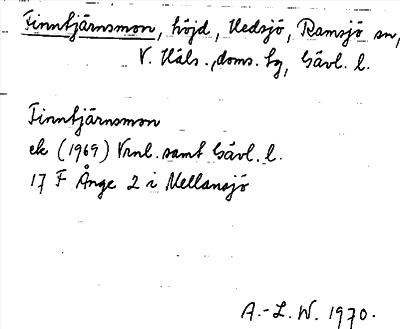 Finntjärnsmon, höjd, Hedsjö, Ramsjö sn,
V. Häls. doms. tg, Gävl. l.
Finntjärnsmon
ek (1969) Vrnl. samt Gävl. l.
17 F Ånge 2 i Mellansjö
A.-L. W. 1970.